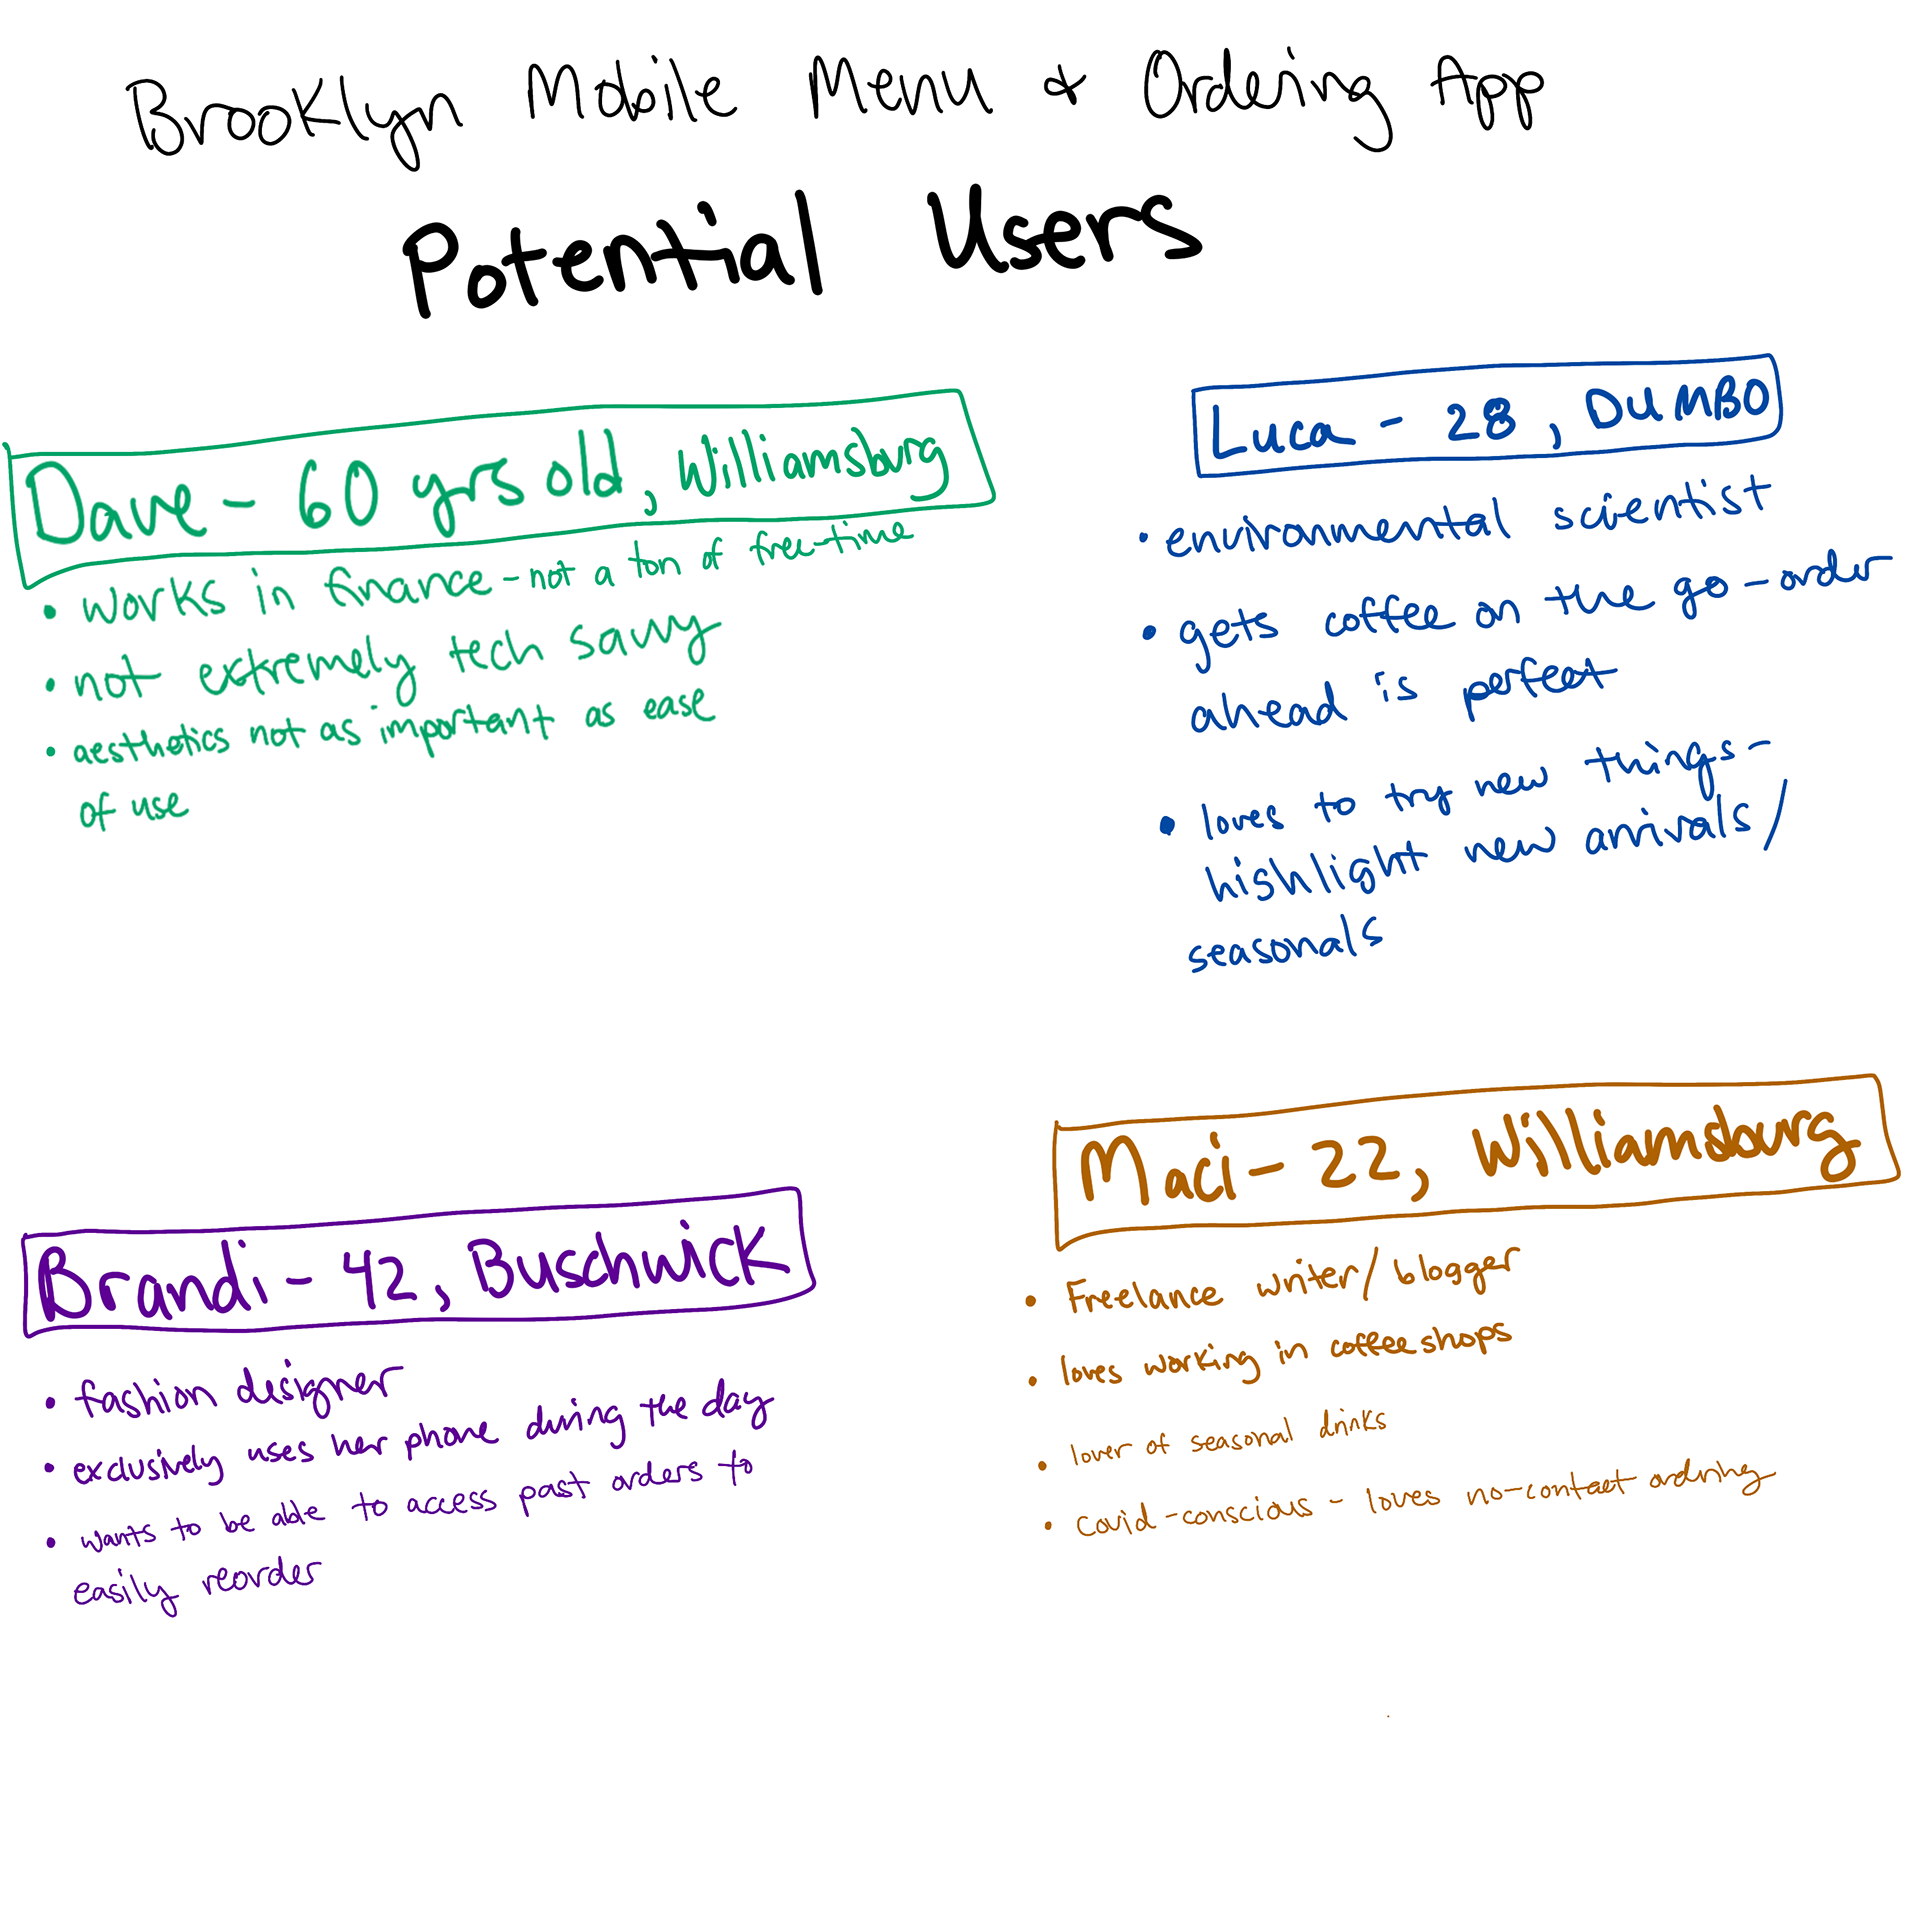 Brooklyn Mobile Menu & Ordering App
Potential Users
Dave - 60 yrs old, Williamsburg
• works in finance - not a ton of free-time
• not extremely tech savvy
• aesthetics not as important as ease
of use
Luca - 28, DUMBO
• environmental scientist
• gets coffee on the go - order
ahead is perfect
• loves to try new things -
highlight new arrivals /
seasonals
Brandi - 42, Buschwick
• fashion designer
• exclusively uses her phone during the day
• wants to be able to access past orders to
easily reorder
Maci - 22, Williamsburg
• Freelance writer/blogger
• loves working in coffee shops
• lover of seasonal drinks
• covid-conscious - loves no-contact ordering